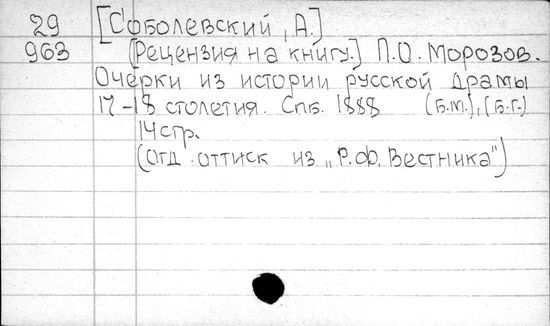 29 [Соболевский, А.]
963 [Рецензия на книгу.] П.О. Морозов.
Очерки из истории русской драмы
17-18 столетия. Спб. 1888 (Б.М.), (Б.Г.)
14 стр.
(Отд. оттиск из „Р. Ф. Вестника")